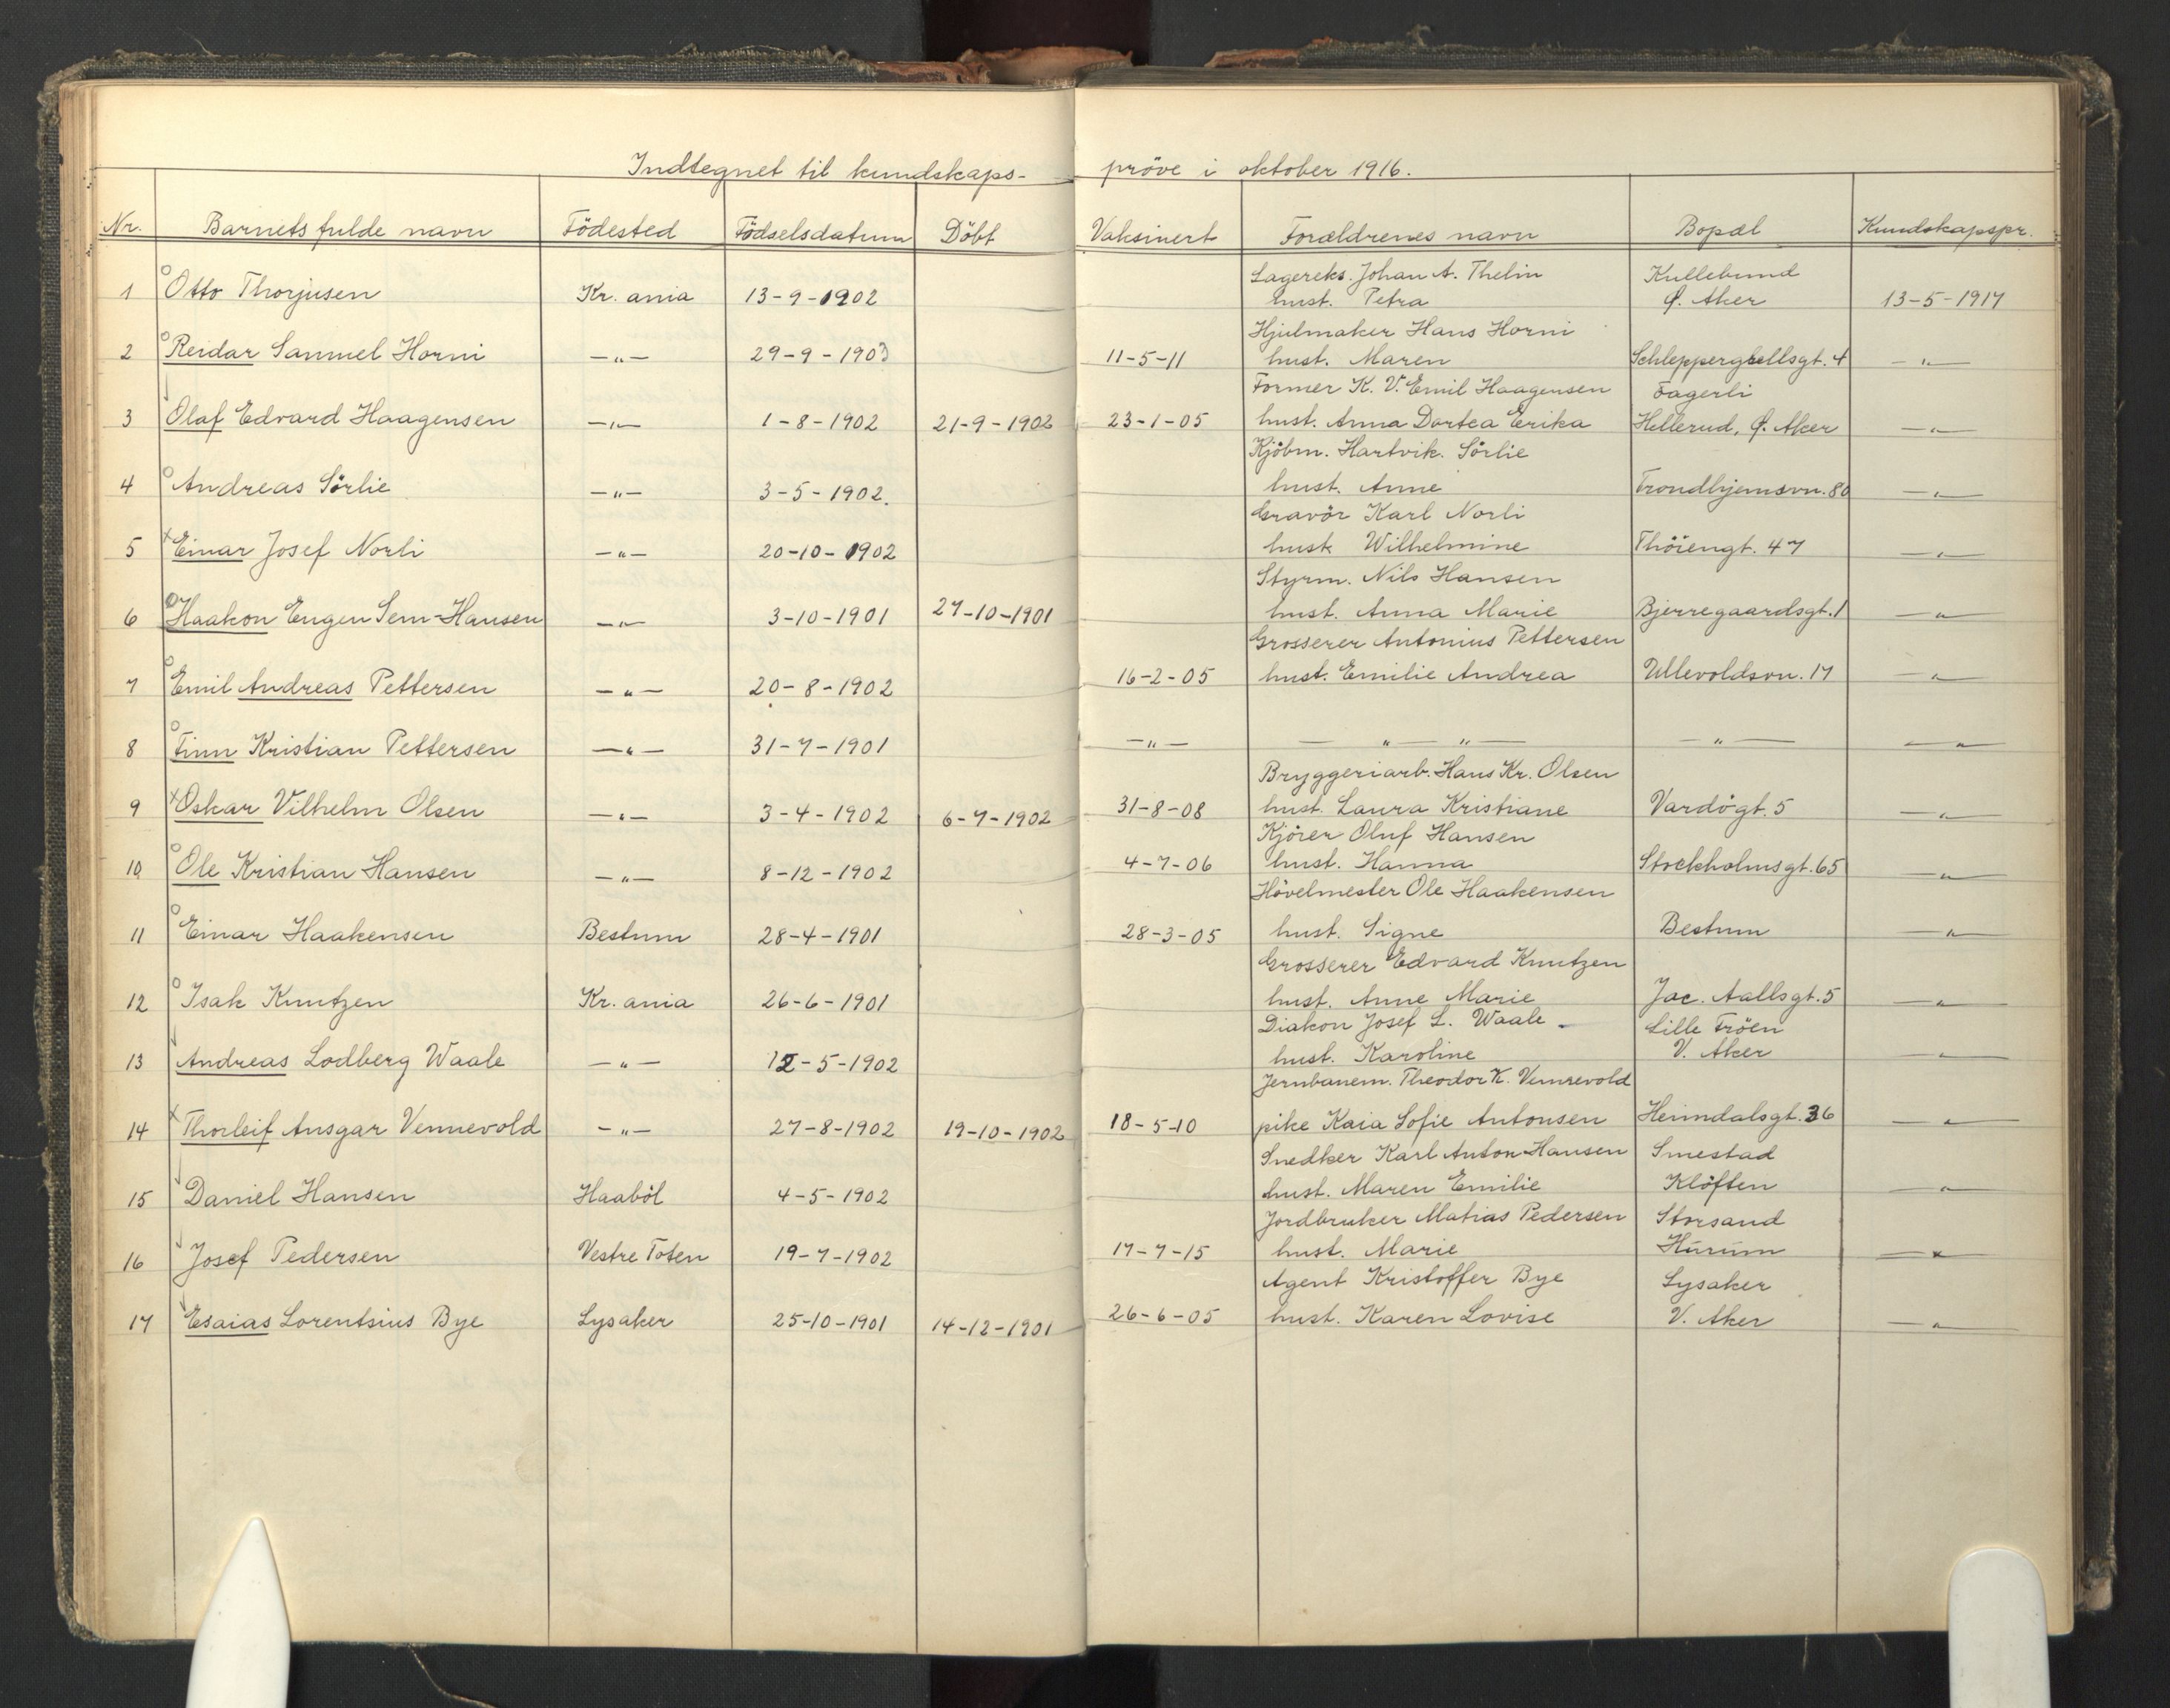 Indtegnet til kundskaps- pröve i oktober 1916.
Nr. Barnets fulde navn Födested Födselsdatum Döbt Vaksinert Forældrenes navn Bopæl Kundskapspr.
Lagereks. Johan A. Thelin Kullebund
1 Otto Thorjusen Kr. ania 13-9-1902 hust. Petra Ø. Aker 13-5-1917
Hjulmaker Hans Horni
2 Reidar Samuel Horni —„— 29-9-1903 11-5-11 hust. Maren Schleppergrellsgt. 4 —„—
Former K. V. Emil Haagensen Fagerli
3 Olaf Edvard Haagensen —„— 1-8-1902 21-9-1902 23-1-05 hust. Anna Dortea Erika Hellerud, Ø. Aker —„—
Kjöbm. Hartvik. Sörlie
4 Andreas Sörlie —„— 3-5-1902. hust. Anne Trondhjemsvn. 80 —„—
Gravör Karl Norli
5 Einar Josef Norli —„— 20-10-1902 husk Wilhelmine Thöiengt. 47 —„—
Styrm. Nils Hansen
6 Haakon Eugen Sem-Hansen —„— 3-10-1901 27-10-1901 hust. Anna Marie Bjerregaardsgt. 1 —„—
Grosserer Antonius Pettersen
7 Emil Andreas Pettersen —„— 20-8-1902 16-2-05 hust. Emilie Andrea Ullevoldsvn. 17 —„—
8 Finn Kristian Pettersen —„— 31-7-1901 —„— —„—„— —„— —„—
Bryggeriarb. Hans Kr. Olsen
9 Oskar Vilhelm Olsen —„— 3-4-1902 6-7-1902 31-8-08 hust. Laura Kristiane Vardögt. 5 —„—
Kjörer Oluf Hansen
10 Ole Kristian Hansen —„— 8-12-1902 4-7-06 hust. Hanna Stockholmsgt. 65 —„—
Hövelmester Ole Haakensen
11 Einar Haakensen Bestum 28-4-1901 28-3-05 hust. Signe Bestum —„—
Grosserer Edvard Knutzen
12 Isak Knutzen Kr. ania 26-6-1901 hust. Anne Marie Jac. Aallsgt. 5 —„—
Diakon Josef L. Waale Lille Fröen
13 Andreas Lodberg Waale —„— 12-5-1902 hust. Karoline V. Aker —„—
Jernbanem. Theodor K. Vennevold
14 Thorleif Ansgar Vennevold —„— 27-8-1902 19-10-1902 18-5-10 pike Kaia Sofie Antonsen Heimdalsgt. 36 —„—
Snedker Karl Anton Hansen Smestad
15 Daniel Hansen Haaböl 4-5-1902 hust. Maren Emilie Klöften —„—
Jordbruker Matias Pedersen Storsand
16 Josef Pedersen Vestre Toten 19-7-1902 17-7-15 hust. Marie Hurum —„—
Agent Kristoffer Bye Lysaker
17 Esaias Lorentsius Bye Lysaker 25-10-1901 14-12-1901 26-6-05 hust. Karen Lovise V. Aker —„—